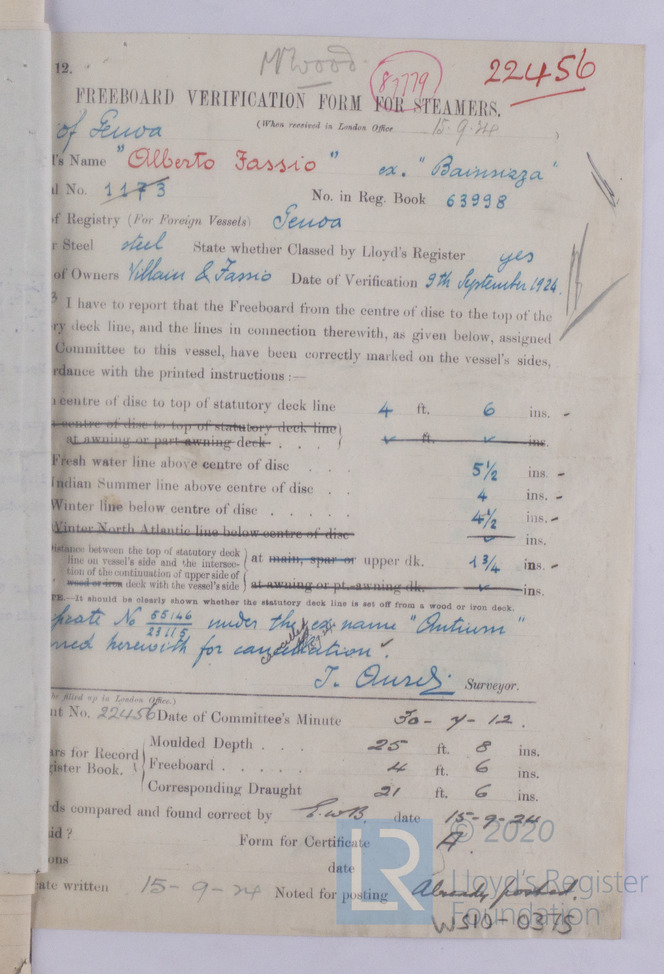 12. N Wood 87779 22456
FREEBOARD VERIFICATION FORM FOR STEAMERS.
(When received in London Office 15-9-24 )
of Genoa
's Name "Alberto Fassio" ex. "Bainsizza"
l No. 1173 No. in Reg. Book 63998
f Registry (For Foreign Vessels) Genoa
r Steel steel State whether Classed by Lloyd's Register yes
of Owners Villain & Fassio Date of Verification 9th September 1924.
I have to report that the Freeboard from the centre of disc to the top of the
ry deck line, and the lines in connection therewith, as given below, assigned
Committee to this vessel, have been correctly marked on the vessel's sides,
rdance with the printed instructions :—
centre of disc to top of statutory deck line 4 ft. 6 ins. -
centre of disc to top of statutory deck line
at awning or part awning deck . . . ft. ins.
Fresh water line above centre of disc . . . 5 1/2 ins. -
Indian Summer line above centre of disc . . 4 ins. -
Winter line below centre of disc . . . . . 4 1/2 ins. -
Winter North Atlantic line below centre of disc ins.
istance between the top of statutory deck
line on vessel's side and the intersec-
tion of the continuation of upper side of
wood or iron deck with the vessel's side
at main, spar or upper dk. 1 3/4 ins. -
at awning or pt.-awning dk. ins.
TE.—It should be clearly shown whether the statutory deck line is set off from a wood or iron deck.
ficate No 55146/23115 under the ex name "Antium"
cancelled
ned herewith for cancellation.
Surveyor.
be filled up in London Office.)
nt No. 22456 Date of Committee's Minute 30-7-12.
ars for Record
ister Book.
Moulded Depth . . . 25 ft. 8 ins.
Freeboard . . . . . 4 ft. 6 ins.
Corresponding Draught 21 ft. 6 ins.
ds compared and found correct by E.W.B. date 15-9-24
id ? Form for Certificate A.
ons date
ate written 15-9-24 Noted for posting Already posted.
W510-0375
LR
© 2020
Lloyd's Register
Foundation